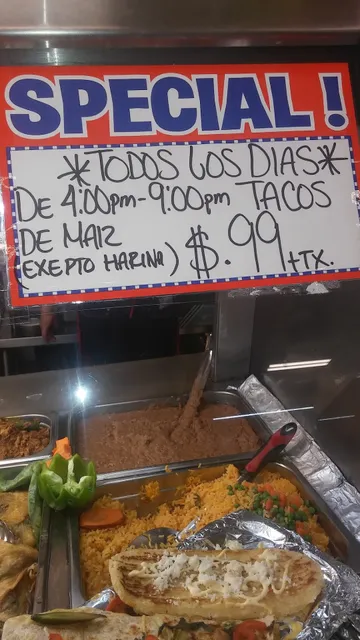 SPECIAL!
*TODOS LOS DIAS*
DE 4:00pm-9:00pm TACOS
DE MAIZ
(EXEPTO HARINA) $.99+TX.